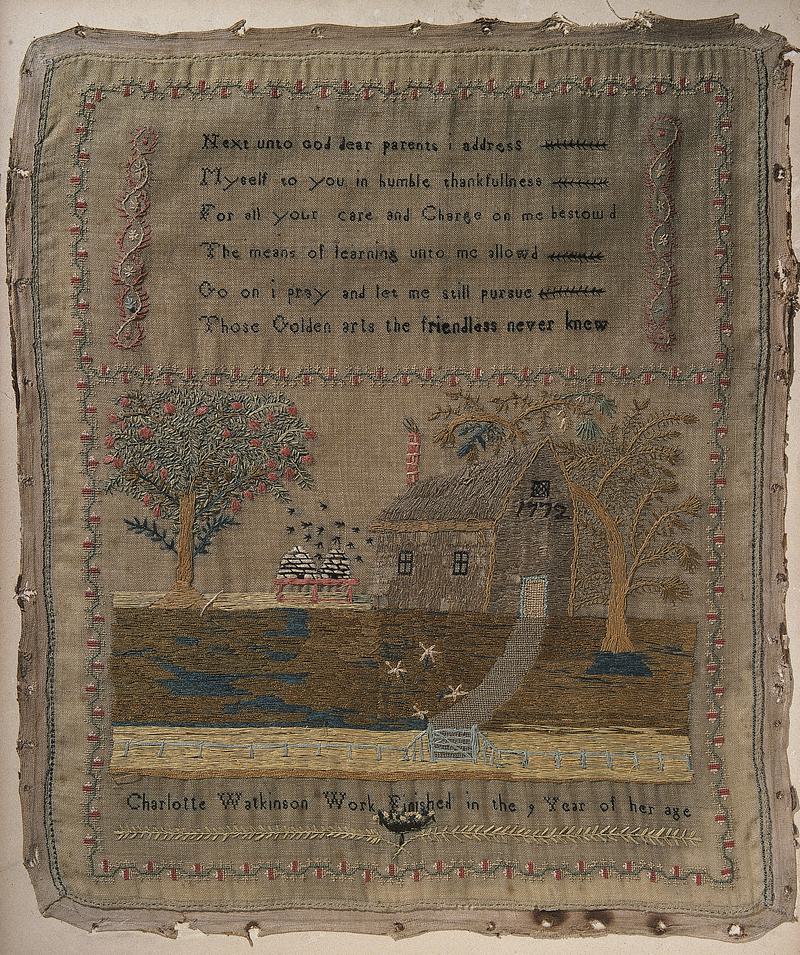 Next unto God dear parents i address
Myself to you in humble thankfullness
For all your care and Charge on me bestow d
The means of learning unto me allowd
Go on i pray and let me still pursue
Those Golden arts the friendless never knew
1772
Charlotte Watkinson Work Finished in the 9 Year of her age